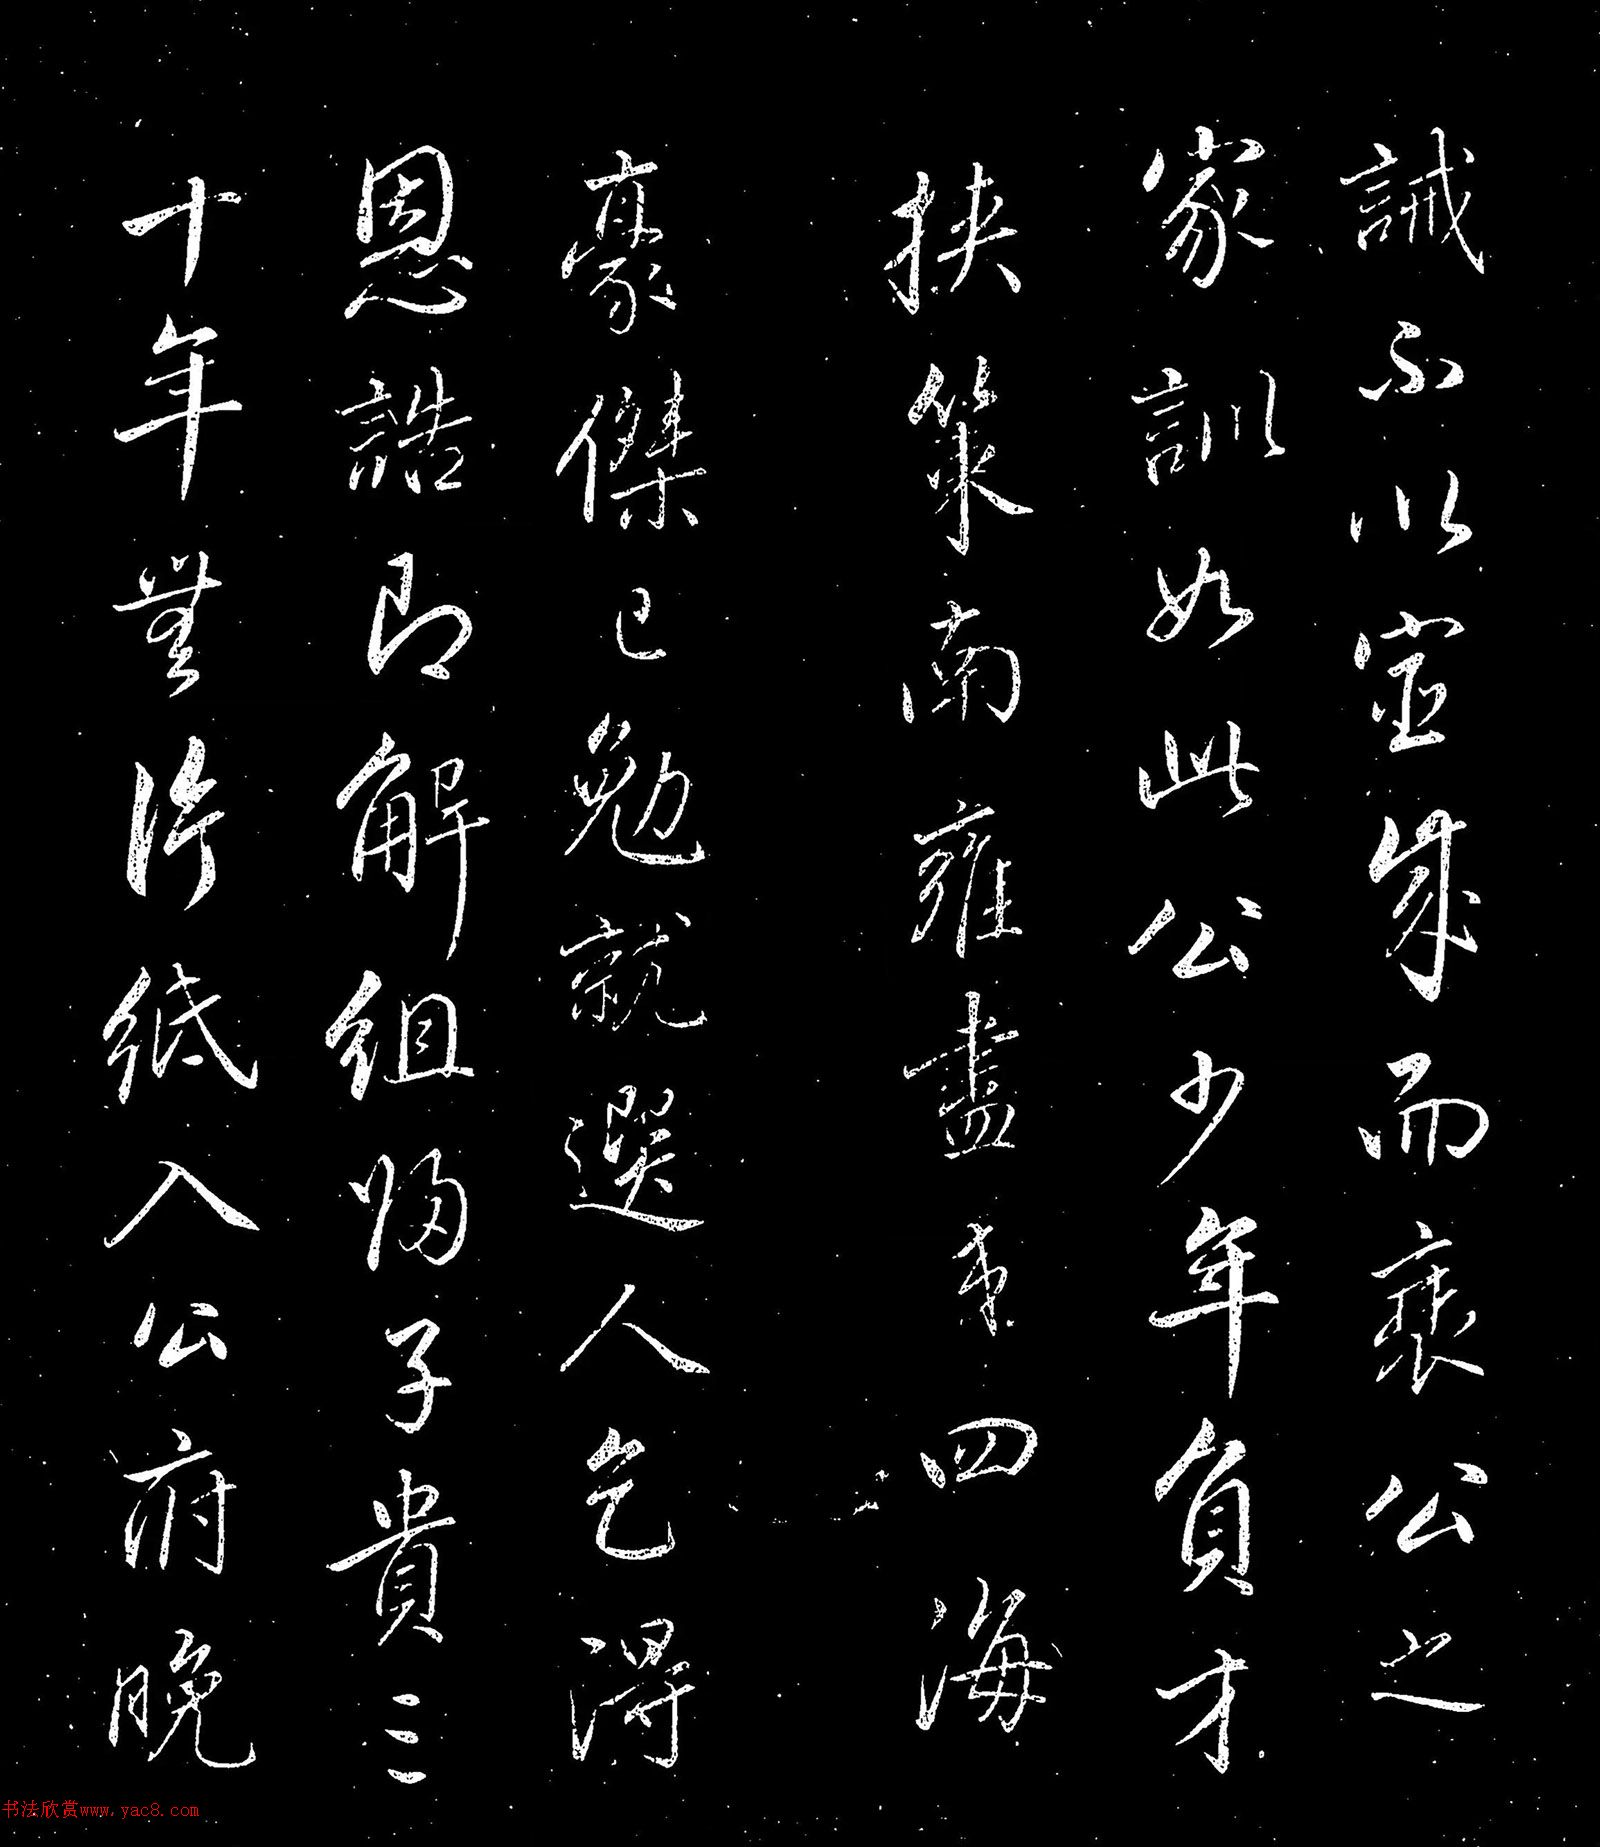 誡不以宦成而衰公之
家訓如此公少年負才
挾策南雍盡交四海
豪傑已勉就選人乞得
恩誥即解組歸子貴三
十年無片紙入公府晚
书法欣赏www.yac8.com